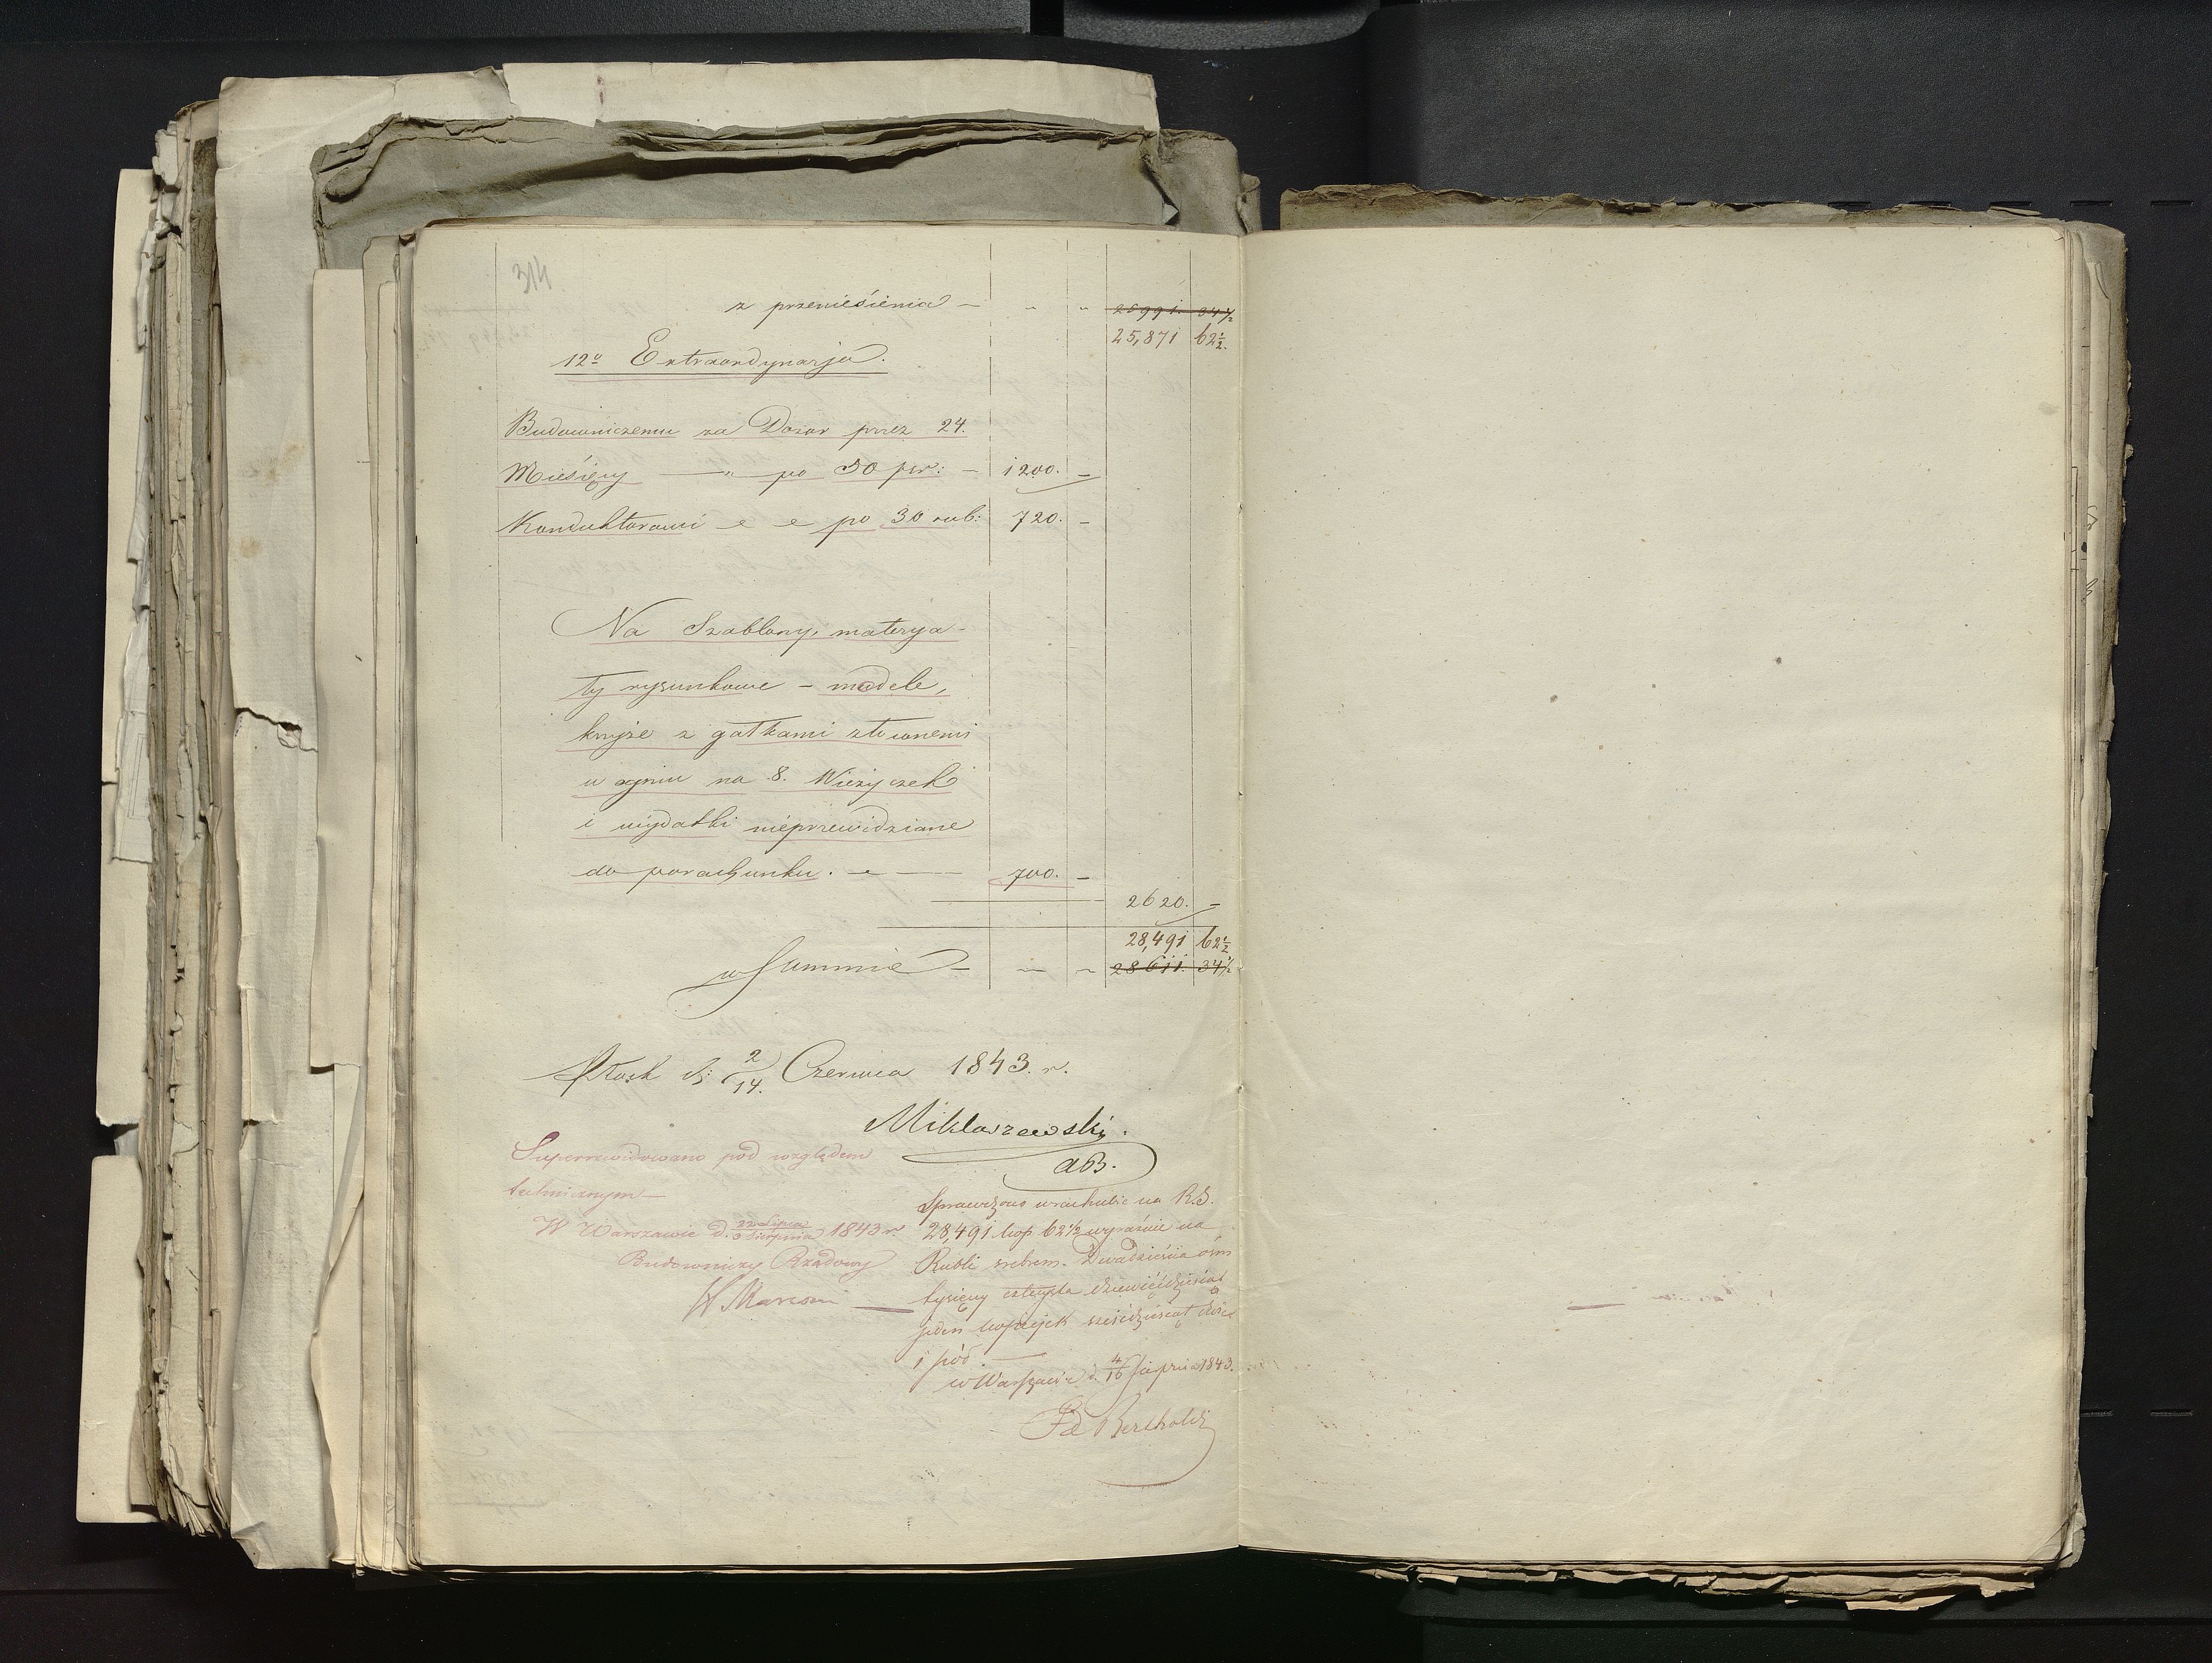 314
z przeniesienia — " " 25991. 34½
25,871 62½.
12o Extraordynarja.
Budowniczemu za Dozor przez 24.
Miesięcy — " po 50 — 1200. —
Konduktorowi po 30 rub: 720. —
Na Szablony, materya-
ły rysunkowe — modele,
krzyże z gałkami złoconemi
w ogniu na 8. Wieżyczek
i wydatki nieprzewidziane
do porachunku. — 700. —
2620. —
28,491 62½
w Summie — 28611. 34½
Płock d: 2/14. Czerwca 1843. r.
Miklaszewski.
AB.
Superrewidowano pod względem
technicznym —
W Warszawie d. 22 Lipca/3 Sierpnia 1843 r.
Budowniczy Rządowy
H Marconi
Sprawdzono w rachubie na R.S.
28,491 kop 62½ wyraźnie na
Rubli srebrem. Dwadzieścia ośm
tysięcy czterysta dziewięćdziesiąt
jeden kopiejek sześćdziesiąt dwie
i pół. —
w Warszawie d 4/16 Sierpnia 1843.
Bertholdi